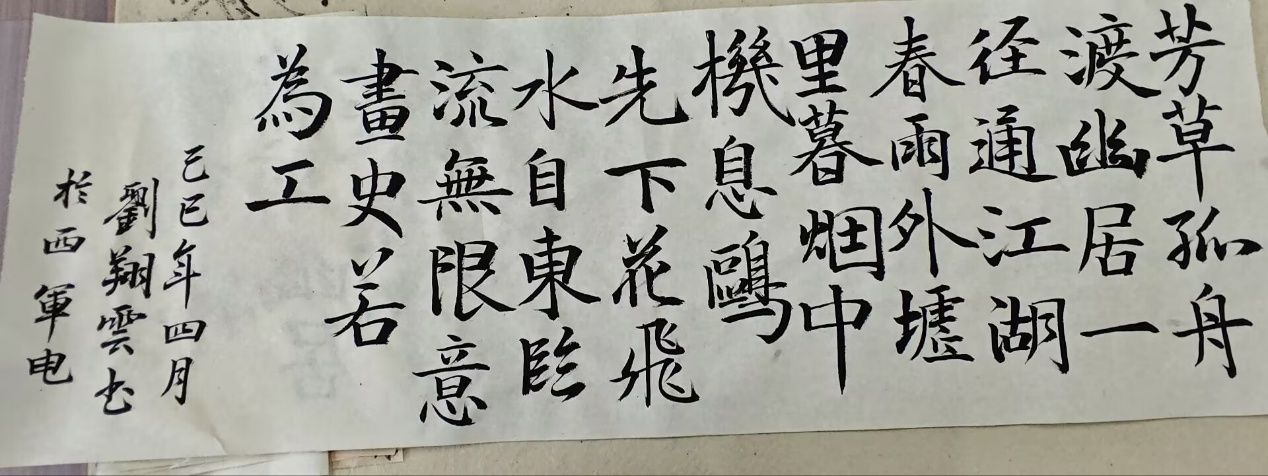 芳草孤舟
渡幽居一
径通江湖
春雨外墟
里暮烟中
機息鷗
先下花飛
水自東臨
流無限意
畫史若
為工
乙巳年四月
劉翔雲书
於西軍电